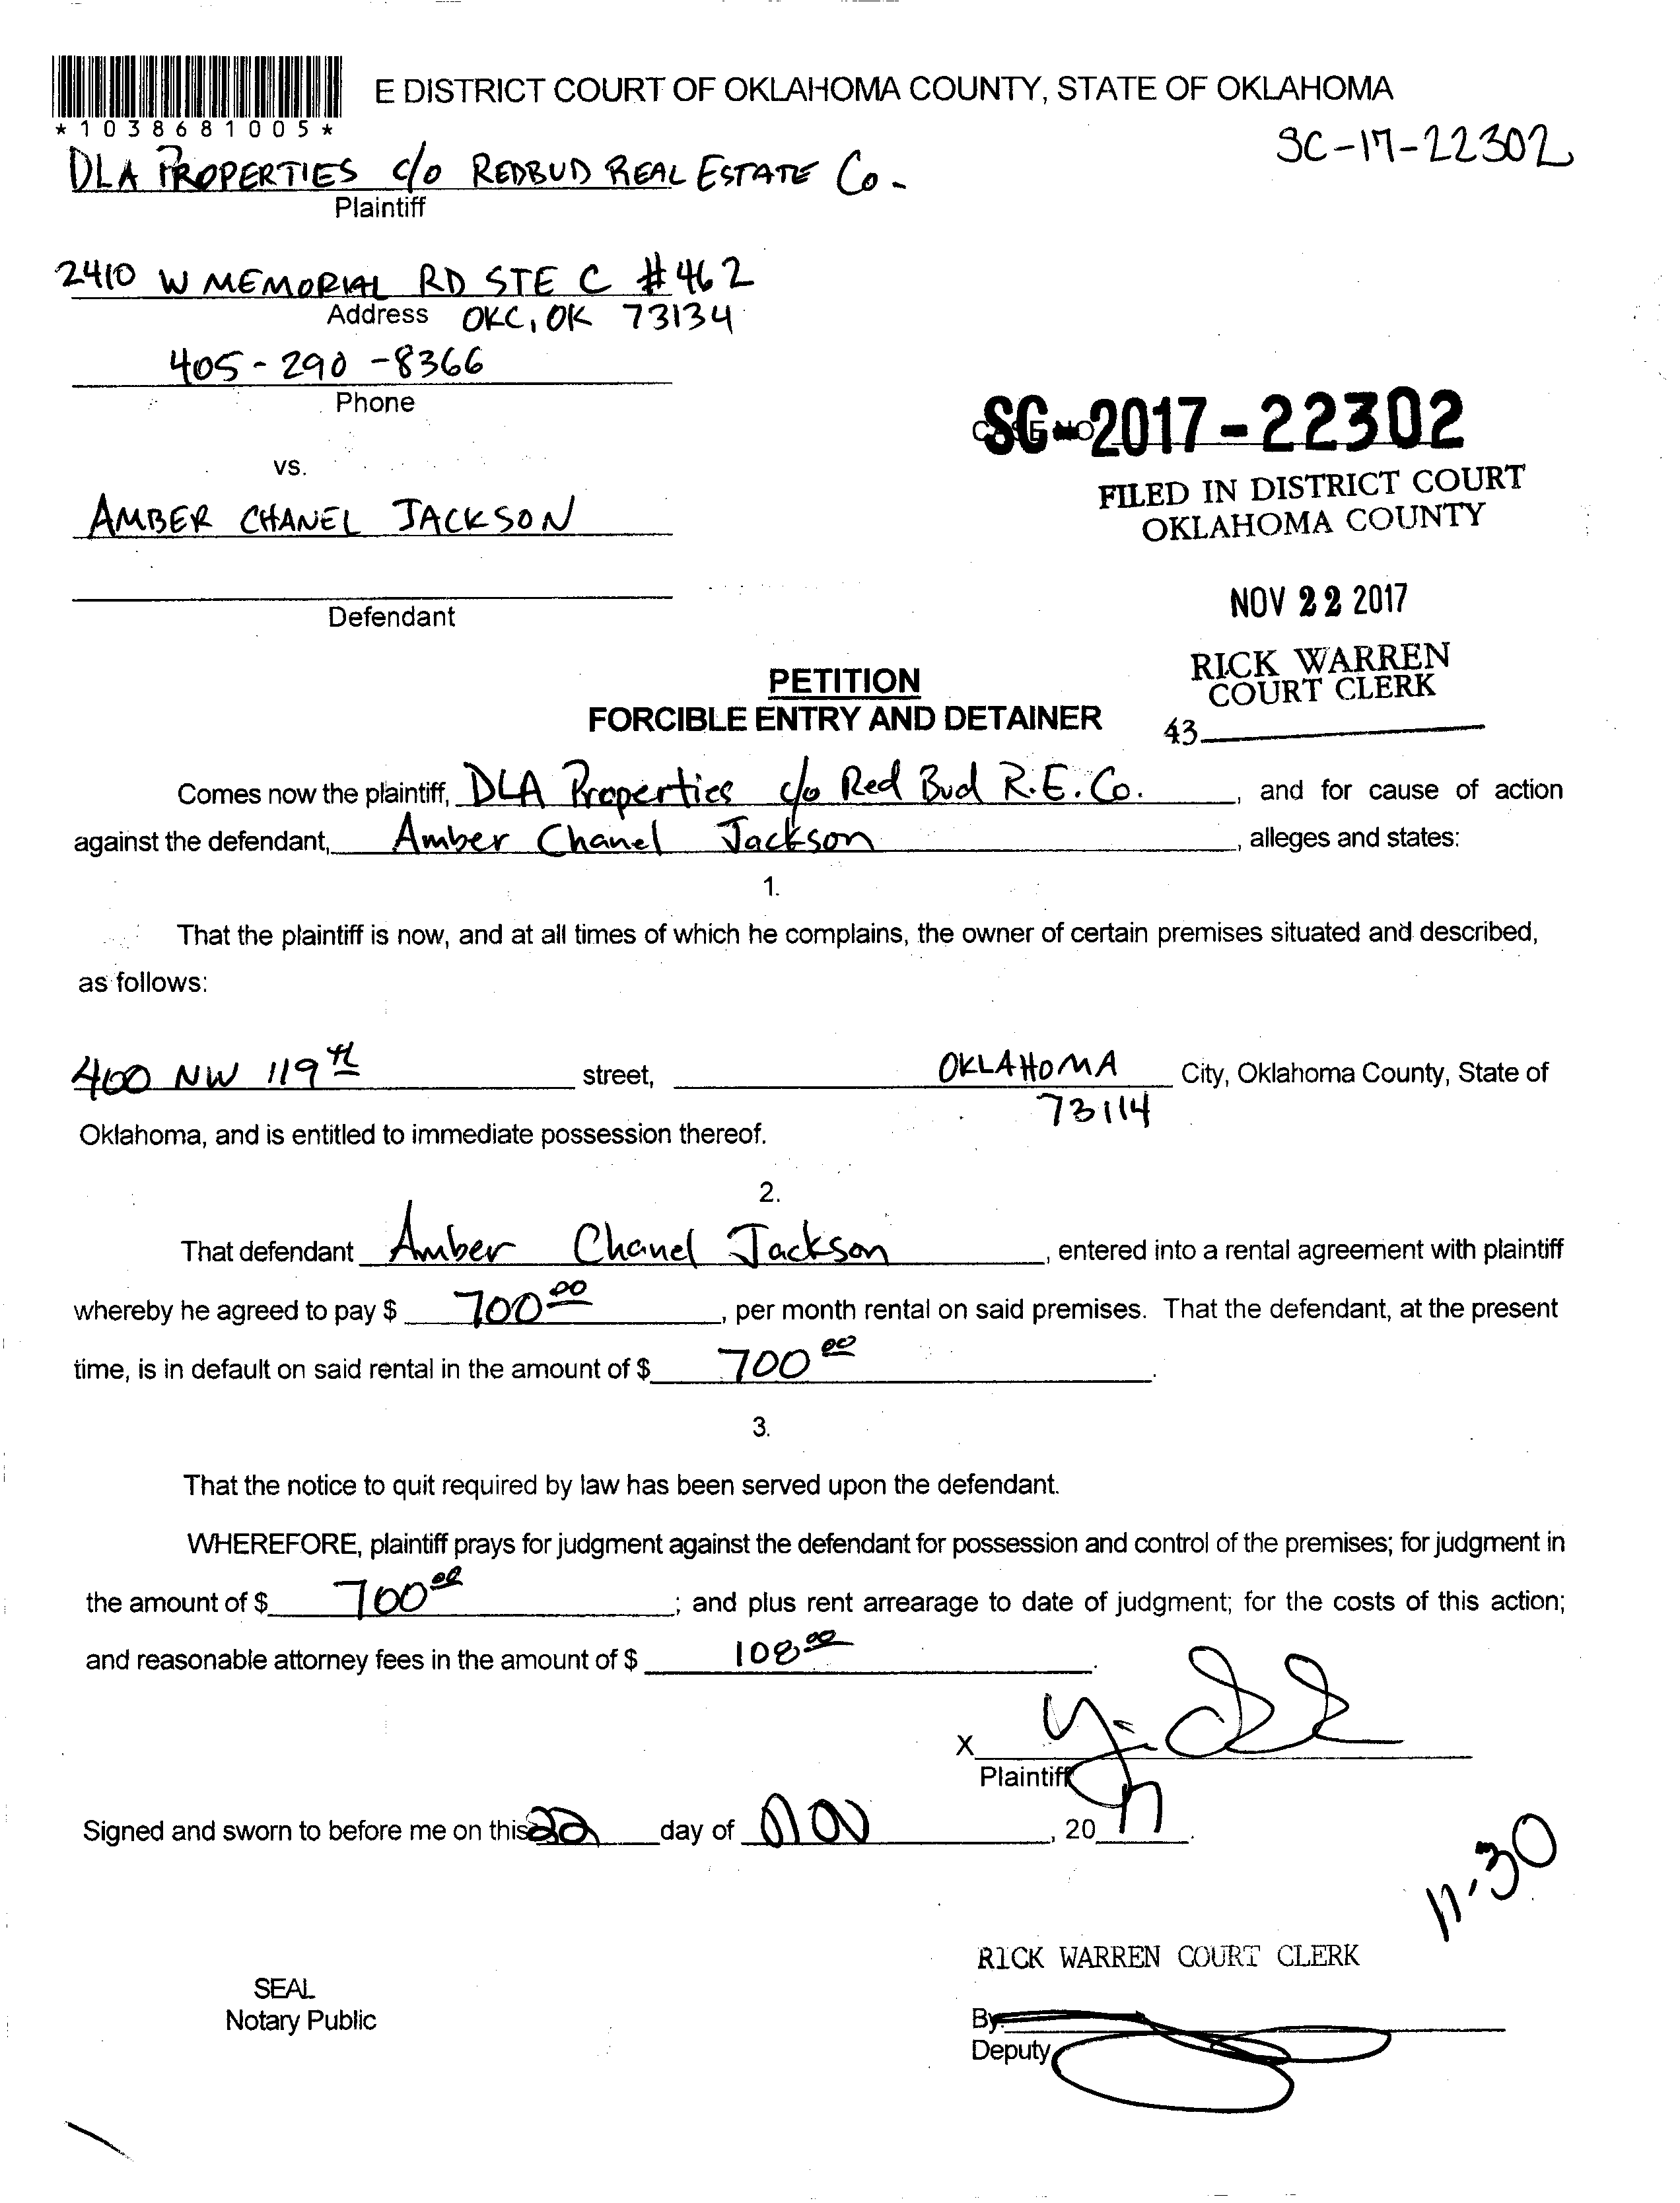 E DISTRICT COURT OF OKLAHOMA COUNTY, STATE OF OKLAHOMA
*1038681005*
SC-17-22302
DLA PROPERTIES c/o REDBUD REAL ESTATE Co.
Plaintiff
2410 W MEMORIAL RD STE C #462
Address OKC, OK 73134
405-290-8366
Phone
SC-2017-22302
vs.
FILED IN DISTRICT COURT
OKLAHOMA COUNTY
AMBER CHANEL JACKSON
Defendant
NOV 22 2017
RICK WARREN
COURT CLERK
43
PETITION
FORCIBLE ENTRY AND DETAINER
Comes now the plaintiff, DLA Properties c/o Red Bud R.E. Co., and for cause of action
against the defendant, Amber Chanel Jackson, alleges and states:
1.
That the plaintiff is now, and at all times of which he complains, the owner of certain premises situated and described,
as follows:
400 NW 119th street, OKLAHOMA City, Oklahoma County, State of
73114
Oklahoma, and is entitled to immediate possession thereof.
2.
That defendant Amber Chanel Jackson, entered into a rental agreement with plaintiff
whereby he agreed to pay $ 700 00, per month rental on said premises. That the defendant, at the present
time, is in default on said rental in the amount of $ 700 00.
3.
That the notice to quit required by law has been served upon the defendant.
WHEREFORE, plaintiff prays for judgment against the defendant for possession and control of the premises; for judgment in
the amount of $ 700 00; and plus rent arrearage to date of judgment; for the costs of this action;
and reasonable attorney fees in the amount of $ 108 00.
X
Plaintiff
Signed and sworn to before me on this 22 day of NOV, 20 17.
11-30
RICK WARREN COURT CLERK
SEAL
Notary Public
By:
Deputy